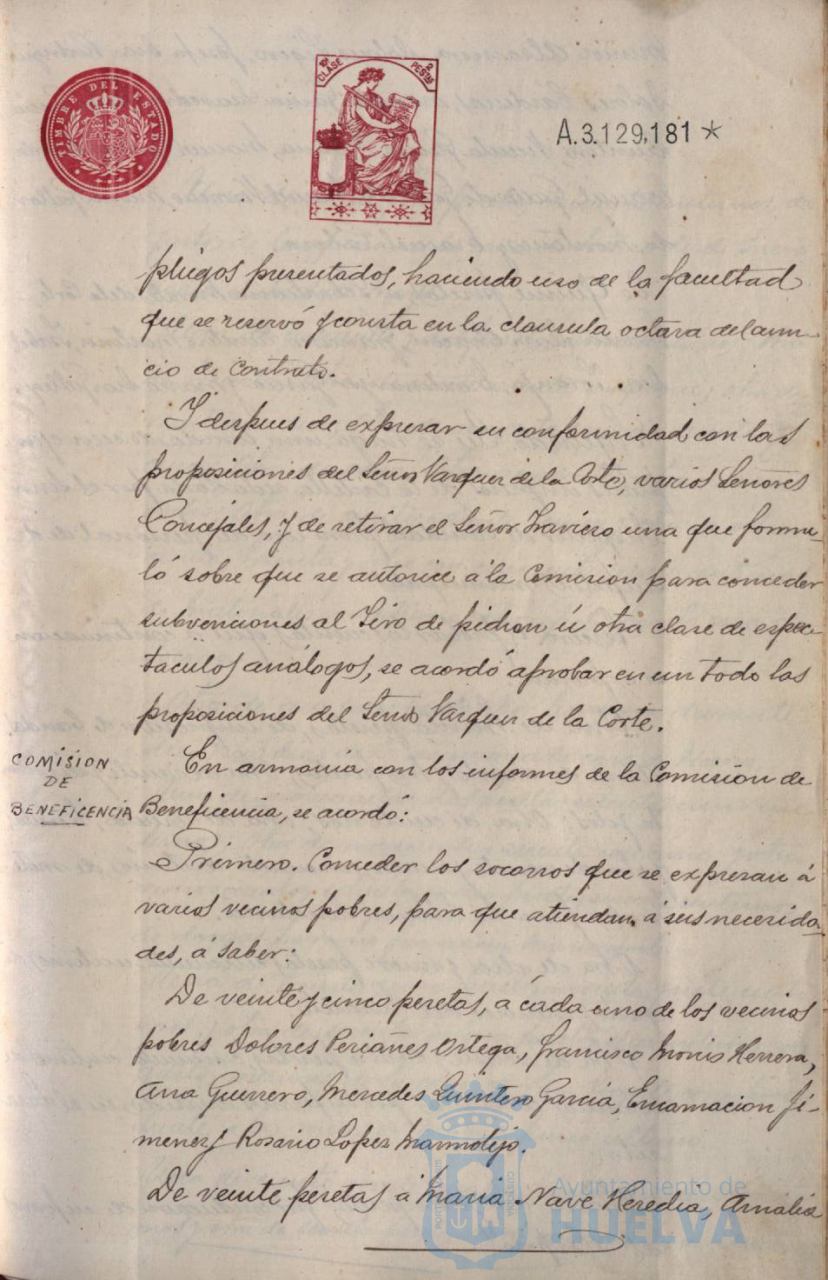 TIMBRE DEL ESTADO
10ª CLASE 2 PESTAS
A.3.129,181*
pliegos presentados, haciendo uso de la facultad
que se reservó y consta en la clausula octava del anun-
cio de contrato.
Y despues de expresar su conformidad con las
proposiciones del Señor Vazquez de la Corte, varios Señores
Concejales, y de retirar el Señor Traviero una que formu-
ló sobre que se autorice á la Comision para conceder
subvenciones al Tiro de pichon ú otra clase de espec-
taculos análogos, se acordó aprobar en un todo las
proposiciones del Señor Vazquez de la Corte.
COMISION
DE
BENEFICENCIA
En armonia con los informes de la Comision de
Beneficencia, se acordó:
Primero. Conceder los socorros que se expresan á
varios vecinos pobres, para que atiendan á sus necesida-
des, á saber:
De veinte y cinco pesetas, á cada uno de los vecinos
pobres Dolores Periañes Ortega, Francisco Monis Herrera,
Ana Guerrero, Mercedes Quintero Garcia, Encarnacion Ji-
menez y Rosario Lopez Marmolejo.
De veinte pesetas á Maria Nave Heredia, Amalia
Ayuntamiento de
HUELVA